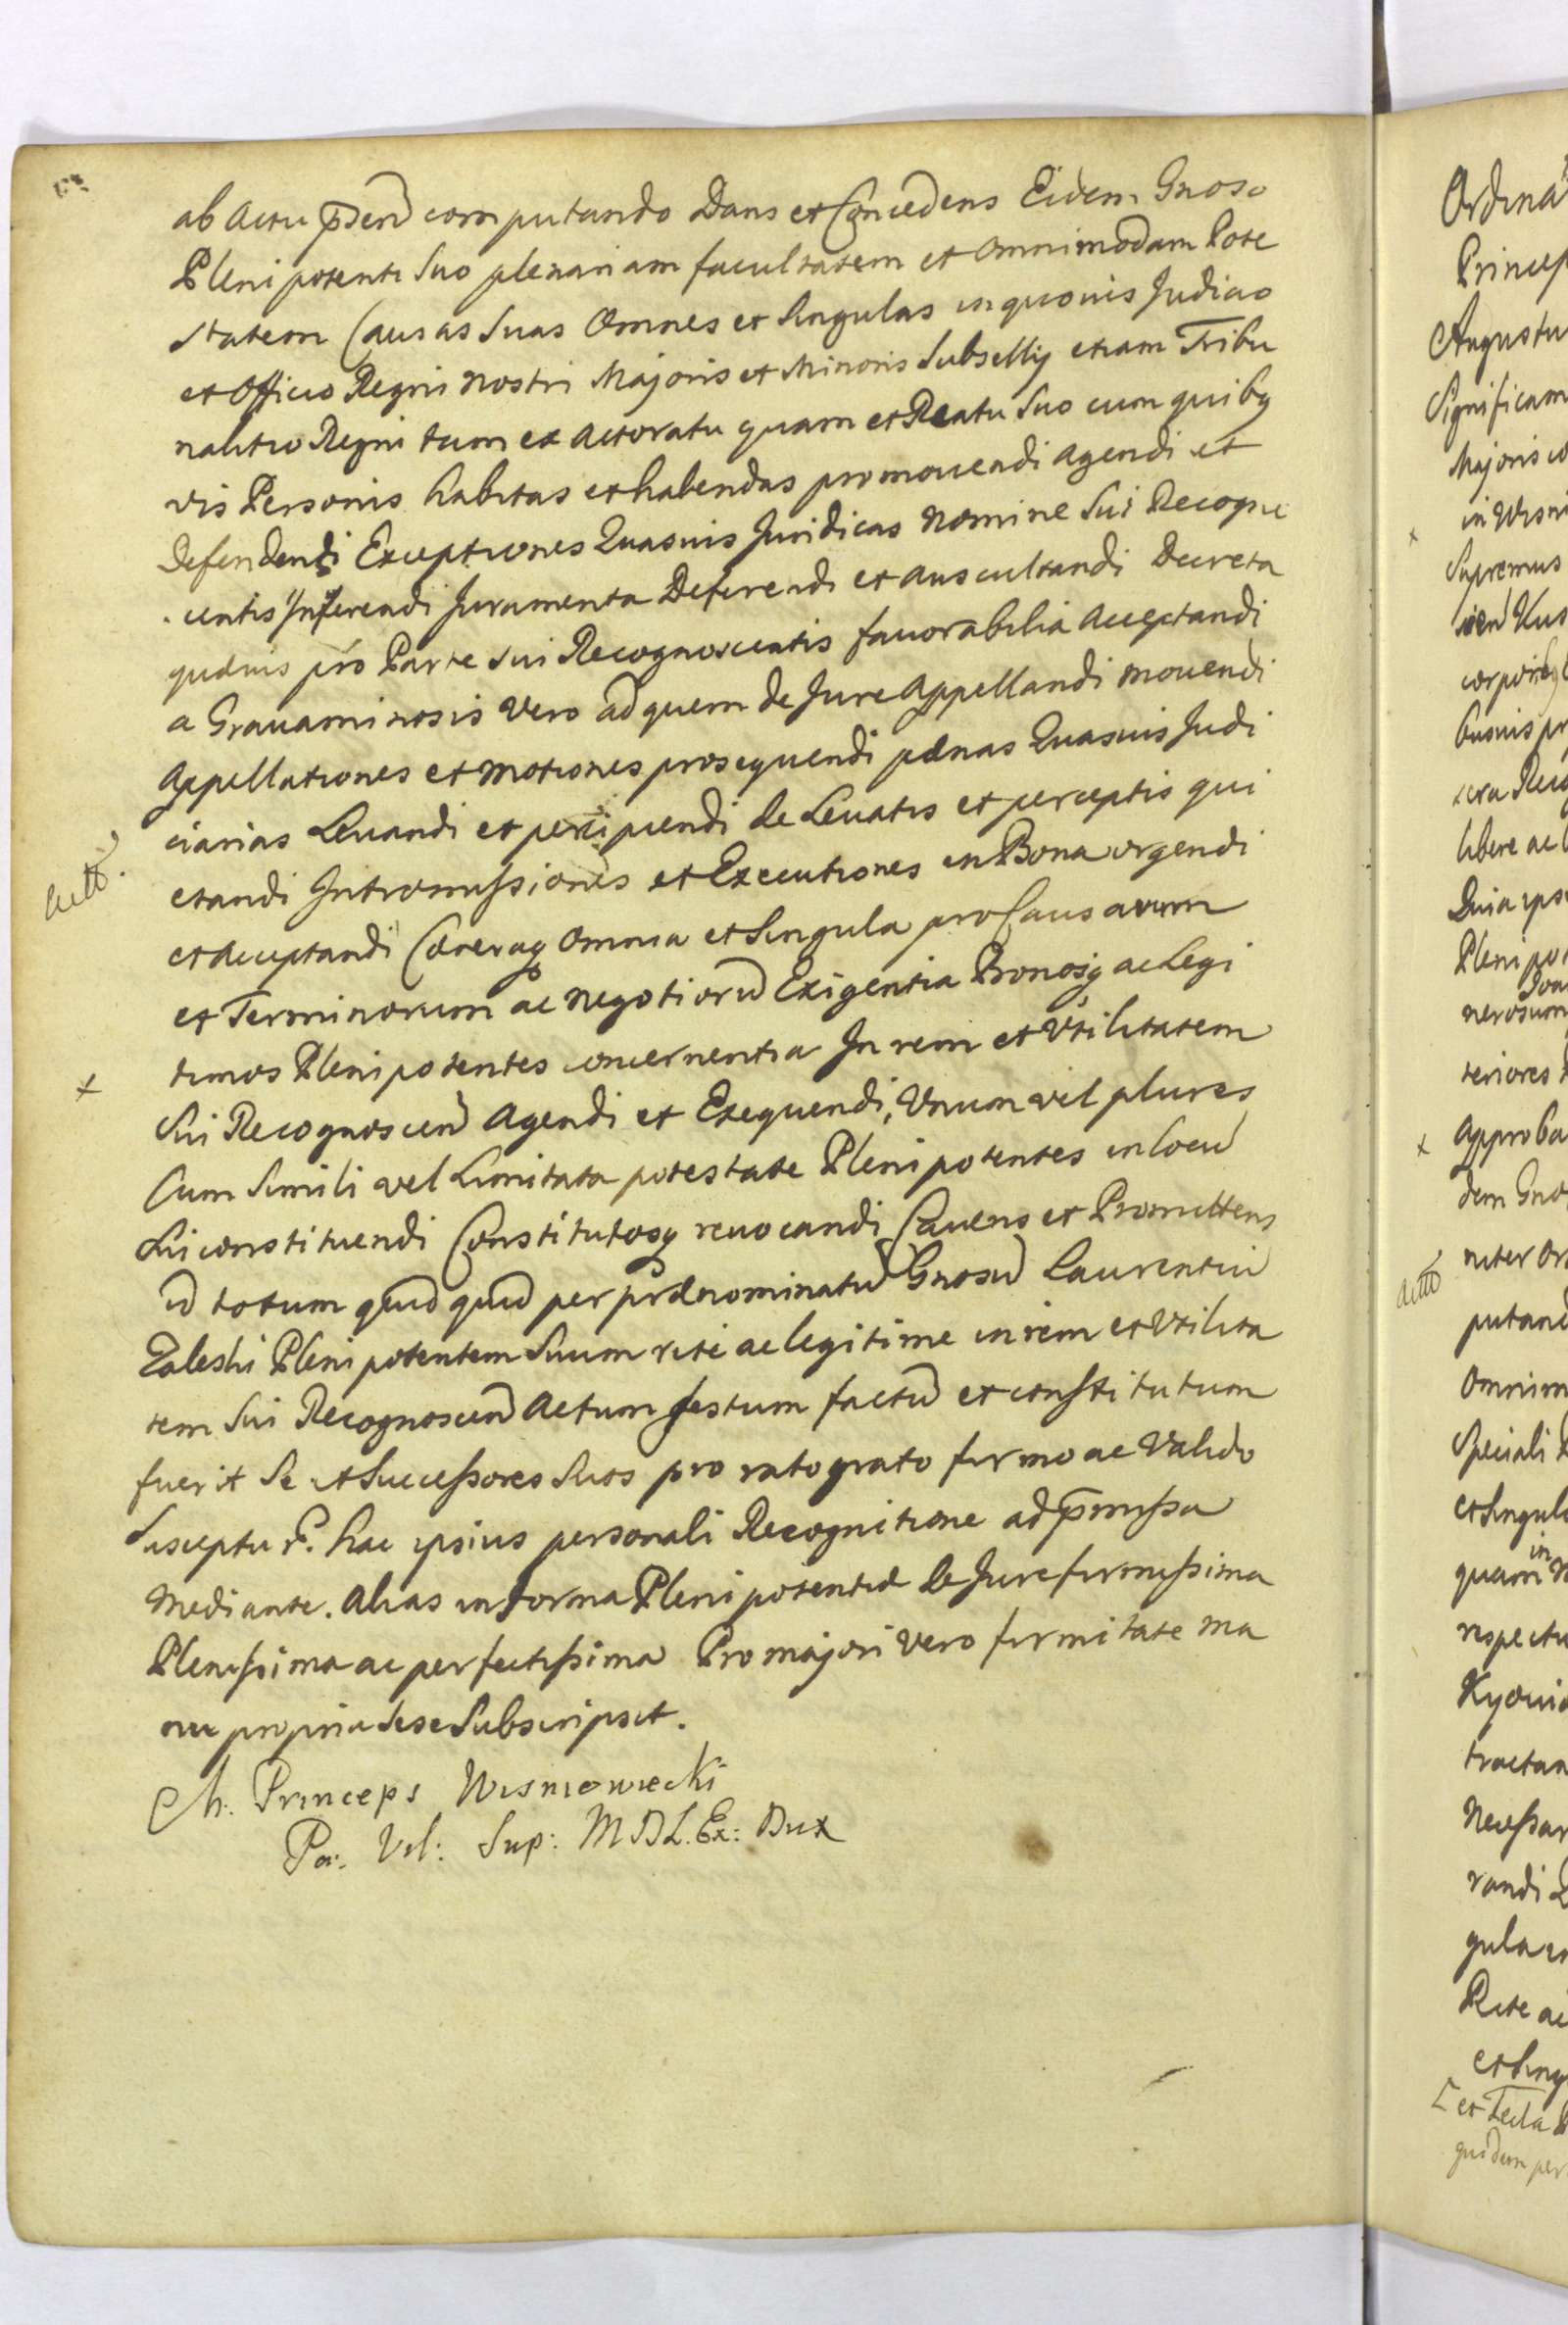 ab Actu p̄send computando Dans et Concedens Eidem Gnoso
Plenipotenti Suo plenariam facultatem et Omnimodam Pote
statem Causas Suas Omnes et Singulas in quovis Judicio
et Officio Regni Nostri Majoris et Minoris Subsellij etiam Tribu
nalitio Regni tum ex Actoratu quam et Reatu Suo cum quibq
vis Personis habitas et habendas promovendi Agendi et
Defendendi Exceptiones Quasvis Juridicas Nomine Sui Recogno
centis Inferendi Juramenta Deferendi et Auscultandi Decreta
quævis pro Parte Sui Recognoscentis favorabilia Acceptandi
a Gravaminosis Vero ad quem de Jure Appellandi Movendi
Appellationes et Motiones prosequendi pænas Quasvis Judi
ciarias Levandi et percipiendi de Levatis et perceptis qui
etandi Intromissiones et Executiones in Bona urgendi
lectt.
et Acceptandi Cæteraq Omnia et Singula pro Causarum
et Terminorum ac Negotiorū Exigentia Bonosq ac Legi
timos Plenipotentes concernentia In rem et Utilitatem
x
Sui Recognoscen Agendi et Exequendi, Unum vel plures
Cum Simili vel Limitata potestate Plenipotentes in locū
Sui constituendi Constitutosq revocandi Cavens et Promittens
id totum quid quid per prænominatū Gnosū Laurentiū
Zaleski Plenipotentem Suum rite ac legitime in rem et Utilita
tem Sui Recognoscen Actum gestum factū et constitutum
fuerit Se et Successores Suos pro rato grato firmo ac Valido
Susceptur. hac ipsius personali Recognitione ad p̄missa
Mediante. Alias in forma Plenipotentiæ de Jure firmissima
Plenissima ac perfectissima Pro majori Vero firmitate ma
nu propria Sese Subscripsit.
M. Princeps Wisniowiecki
Pa. Vil: Sup: M D L. Ex: Dux
Ordina
Princip
Augustu
Significam
Majoris
in Wisn
x
Supremus
libere ac
Quia ips
Plenipo
nerosum
teriores
x
Approba
dem Gno
actt
putand
Omnim
Speciali
et Singul
in
quam
respectu
Kyovi
tractan
Necessar
randi
gula
Rite ac
et Sing
quidem per